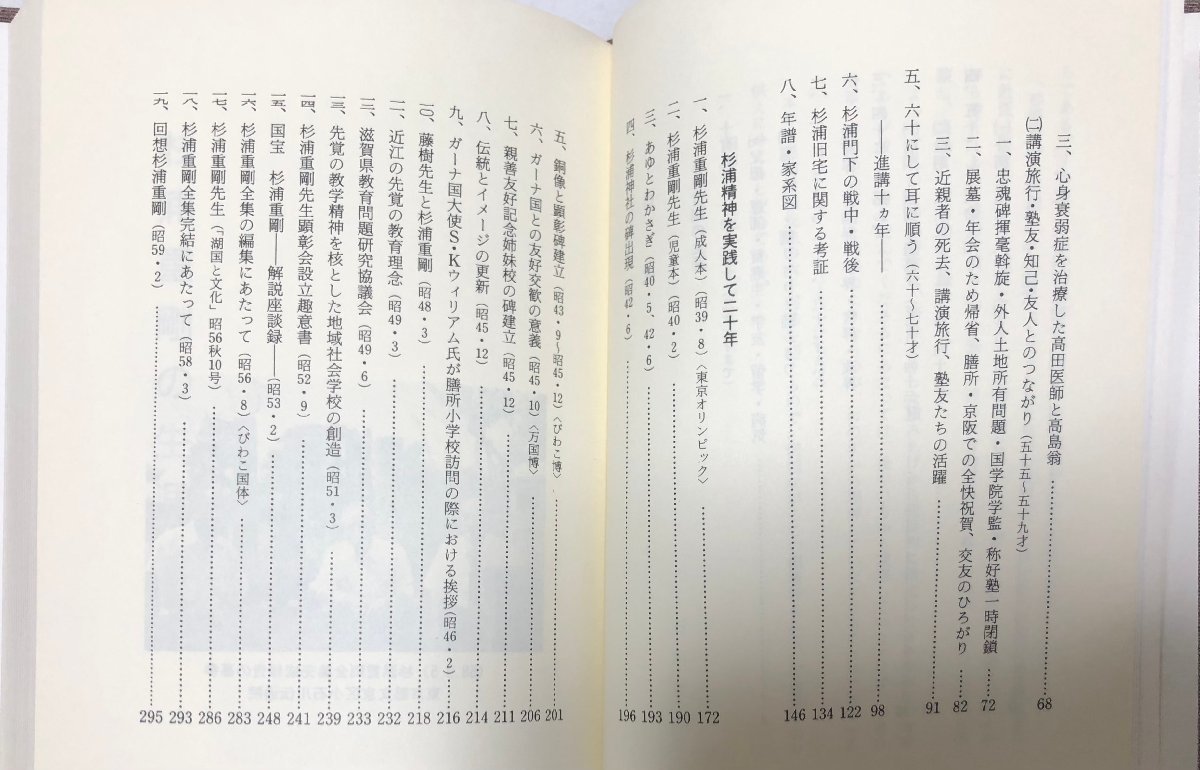 三、心身衰弱症を治療した高田医師と高島翁……68
㈡講演旅行・塾友・知己・友人とのつながり(五十五~五十九才)
一、忠魂碑揮毫斡旋・外人土地所有問題・国学院学監・称好塾一時閉鎖……72
二、展墓・年会のため帰省、膳所・京阪での全快祝賀、交友のひろがり……82
三、近親者の死去、講演旅行、塾友たちの活躍……91
五、六十にして耳に順う(六十~七十才)
――進講十ヵ年――……98
六、杉浦門下の戦中・戦後……122
七、杉浦旧宅に関する考証……134
八、年譜・家系図……146
杉浦精神を実践して二十年
一、杉浦重剛先生(成人本)(昭39・8)〈東京オリンピック〉……172
二、杉浦重剛先生(児童本)(昭40・2)……190
三、あゆとわかさぎ(昭40・5、42・6)……193
四、杉浦神社の碑出現(昭42・6)……196
五、銅像と顕彰碑建立(昭43・9~昭45・12)〈びわこ博〉……201
六、ガーナ国との友好交歓の意義(昭45・10)〈万国博〉……206
七、親善友好記念姉妹校の碑建立(昭45・12)……211
八、伝統とイメージの更新(昭45・12)……214
九、ガーナ国大使S・Kウィリアム氏が膳所小学校訪問の際における挨拶(昭46・2)……216
一〇、藤樹先生と杉浦重剛(昭48・3)……218
一一、近江の先覚の教育理念(昭49・3)……232
一二、滋賀県教育問題研究協議会(昭49・6)……233
一三、先覚の教学精神を核とした地域社会学校の創造(昭51・3)……239
一四、杉浦重剛先生顕彰会設立趣意書(昭52・9)……241
一五、国宝 杉浦重剛――解説座談録――(昭53・2)……248
一六、杉浦重剛全集の編集にあたって(昭56・8)〈びわこ国体〉……283
一七、杉浦重剛先生(「湖国と文化」昭56秋10号)……286
一八、杉浦重剛全集完結にあたって(昭58・3)……293
一九、回想杉浦重剛(昭59・2)……295